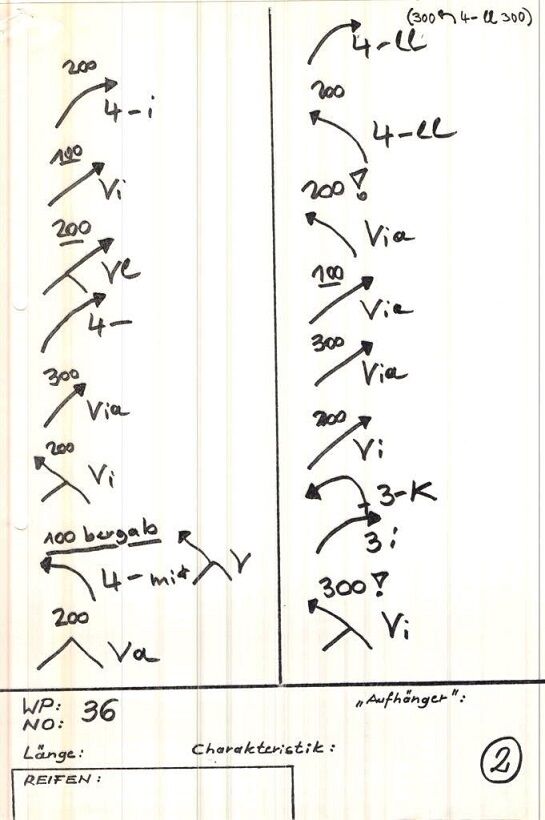 200
4-i
100
Vi
200
Ve
4-
300
Via
200
Vi
100 bergab
4-mit V
200
Va
(300 4-ll 300)
4-ll
200
4-ll
200!
Via
100
Via
300
Via
200
Vi
3-K
3i
300!
Vi
WP:
NO: 36
"Aufhänger":
Länge: Charakteristik:
2
REIFEN: